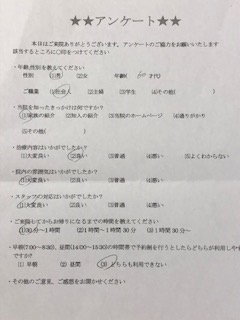 ★★アンケート★★
本日はご来院ありがとうございます。アンケートのご協力をお願いいたします
該当するところに○印をつけてください
・年齢,性別を教えてください
性別 (1)男 (2)女 年齢( 60 才代)
ご職業 (1)社会人 (2)主婦 (3)学生 (4)その他( )
・当院を知ったきっかけは何ですか?
(1)家族の紹介 (2)知人の紹介 (3)当院のホームページ (4)通りがかり
(5)その他( )
・治療内容はいかがでしたか?
(1)大変良い (2)良い (3)普通 (4)悪い (5)よくわからない
・院内の雰囲気はいかがでしたか?
(1)大変良い (2)良い (3)普通 (4)悪い
・スタッフの対応はいかがでしたか?
(1)大変良い (2)良い (3)普通 (4)悪い
・ご来院してからお帰りになるまでの時間を教えてください
(1)30分~1時間 (2)1時間~1時間30分 (3)1時間30分
・早朝(7:00~8:30)、昼間(14:00~15:30)の時間帯で予約制を行うとしたらどちらが利用しや
ですか?
(1) 早朝 (2) 昼間 (3)どちらも利用できない
・その他のご意見、ご感想をお聞かせください